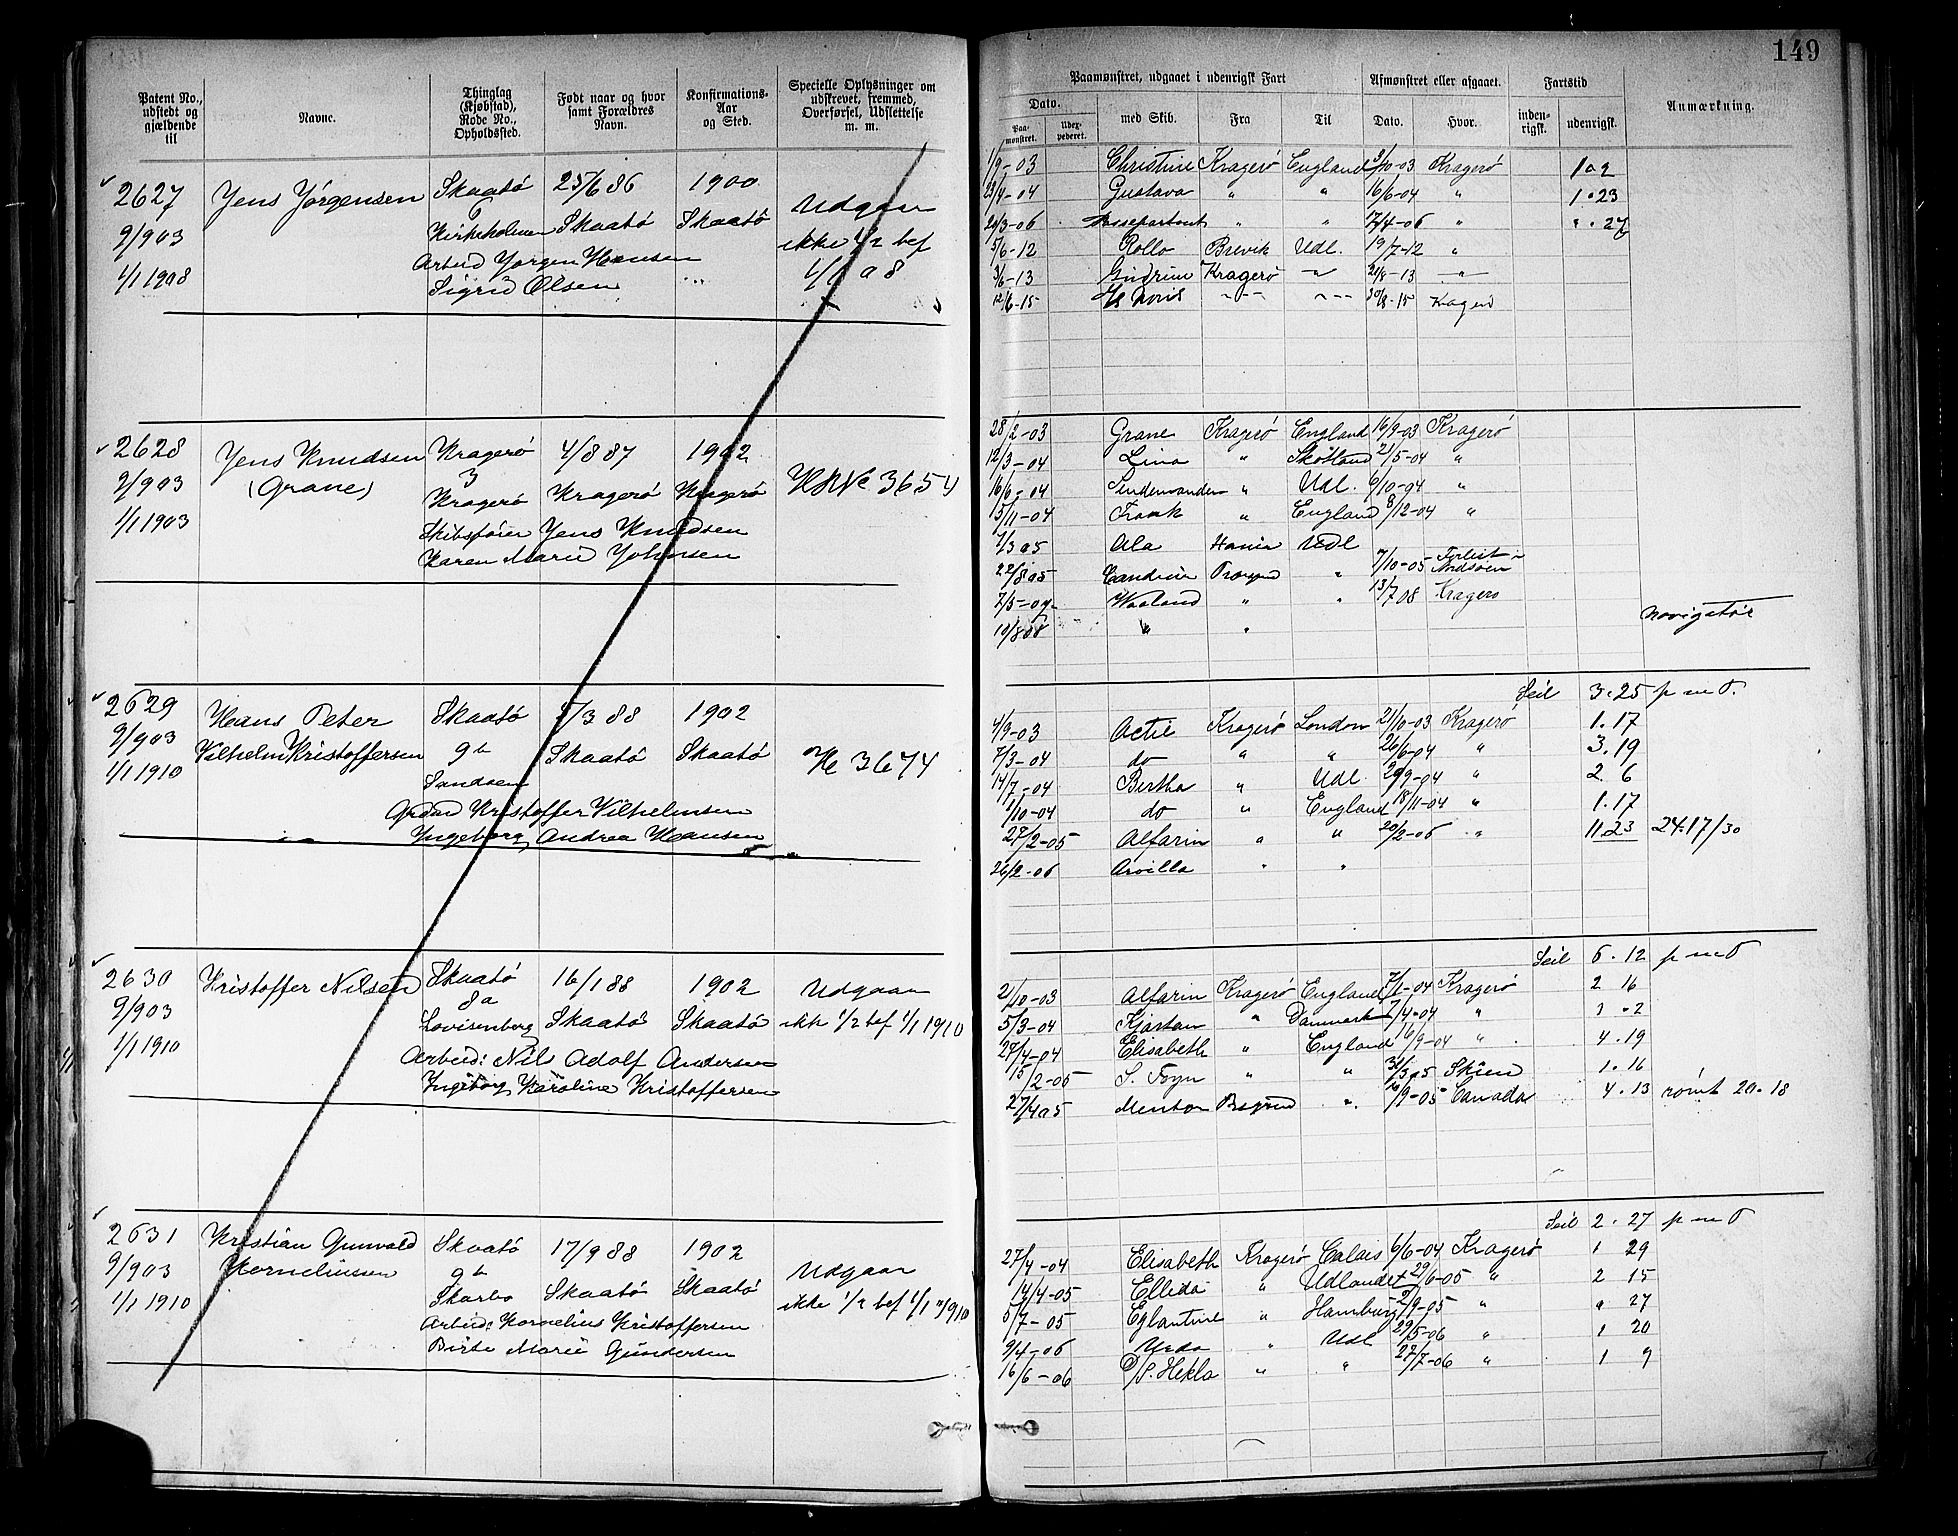 149
Patent No., udstedt og gjældende til
Navne.
Thinglag (Kjøbstad), Rode No., Opholdssted.
Født naar og hvor samt Forældres Navn.
Konfirmations-Aar og Sted.
Specielle Oplysninger om udskrevet, fremmed, Overførsel, Udslettelse m. m.
2627 Jens Jörgensen Skaatö 25/6 86 1900 Udgaar
9/903 Kirkeholmen Skaatö Skaatö ikke 1/2 bef
1/1 1908 Arbeid Jörgen Hansen 1/1 08
Sigrid Olsen
2628 Jens Knudsen Kragerö 4/8 87 1902
9/903 (Grane) 3 3654
Kragerö Kragerö Kragerö
1/1 1903 Skibsförer Jens Knudsen
Karen Marie Johnsen
2629 Hans Peter Skaatö 5/3 88 1902
9/903 Vilhelm Kristoffersen 9b Skaatö Skaatö 3674
1/1 1910
Kristoffer Vilhelmsen
Ingeborg Andrea Hansen
2630 Kristoffer Nilsen Skaatö 16/1 88 1902 Udgaar
9/903 8a
Lovisenberg Skaatö Skaatö ikk 1/2 bef 1/1 1910
1/1 1910 Arbeid: Nils Adolf Andersen
Ingeborg Karoline Kristoffersen
2631 Kristian Gunvald Skaatö 17/9 88 1902
9/903 Korneliussen 9b Udgaar
1/1 1910 Skarbo Skaatö Skaatö ikke 1/2 bef 1/1 1910
Arbeid: Kornelius Kristoffersen
Birte Marie Gundersen
Paamønstret, udgaaet i udenrigsk Fart
Afmønstret eller afgaaet.
Fartstid
Anmærkning.
Dato.
Paa-mønstret.
Udex-pederet.
med Skib.
Fra
Til
Dato.
Hvor.
inden-rigsk.
udenrigsk.
1/9-03 Christine Kragerö England 3/10-03 Kragerö 1 2
23/4-04 Gustava " " 16/6-04 " 1 23
20/3-06 Passepartout " " 17/4-06 " " 27
5/6-12 Rollo Brevik Udl. 19/7-12 "
3/6-13 Gudrun Kragerö -"- 21/8-13 -"-
12/6-15 30/8-15 Kragerö
28/2-03 Grane Kragerö England 16/9-03 Kragerö
12/3-04 Lina " Skotland 21/5-04 "
16/6-04 " Udl. 6/10-04 "
5/11-04 Frank " England 8/12-04 "
1/3 05 Ala Udl
22/8 05 " 7/10-05 Forlist Nordsöen
7/5-07 Vaaland " " 13/7 08 Kragero
10/8 08 " " Navigatör
Seil 3.25 p m d.
4/9-03 Actie Kragerö London 21/10-03 Kragerö 1.17
7/3-04 do " " 26/6-04 " 3.19
14/7-04 Bertha " Udl. 20/9-04 " 2 6
1/10-04 do " England 18/11-04 " 1.17
28/2-05 Alfarin " " 20/2-06 " 11 23 24.17/30
26/2-06 Arvilla " "
Seil 6.12 p m d
21/10-03 Alfarin Kragerö England 7/1-04 Kragerö 2 16
5/3-04 Kjartan " Danmark 7/4-04 " 1.2
27/4-04 Elisabeth " England 16/9-04 " 4.19
15/2-05 S. Foyn " " 31/3 05 Skien 1.16
27/4 05 Mentor " 10/9-05 Canada 4.13 römt 20.18
Seil 2.27 p m d
27/4-04 Elisabeth Kragerö Calais 6/6-04 Kragerö 1 29
14/4-05 Ellida " Udlandet 29/6-05 " 2 15
5/7-05 Eglantine " Hamburg 2/9-05 " " 27
9/4-06 " Udl 29/5-06 " 1 20
16/6-06 D/S. Hekla " " 22/7-06 " 1 9